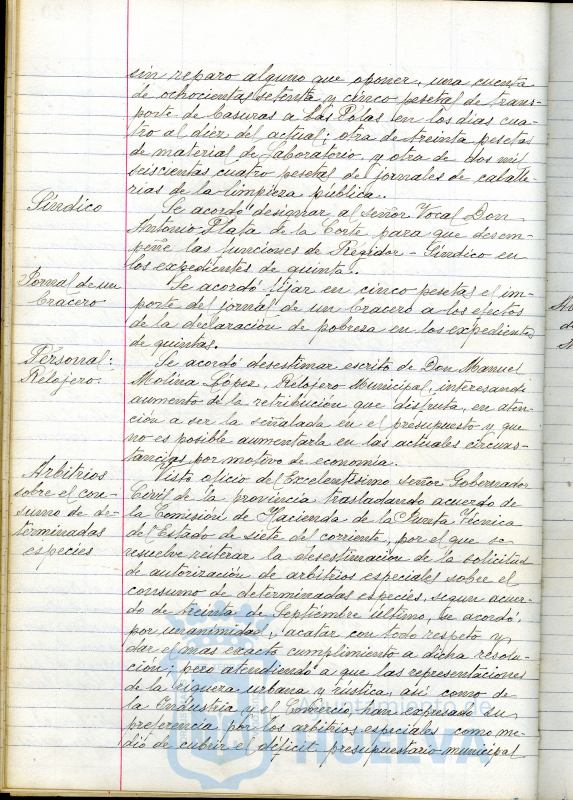 sin reparo alguno que oponer, una cuenta
de ochocientas setenta y cinco pesetas de trans-
porte de basuras a Las Pólas en los días cua-
tro al diez del actual; otra de treinta pesetas
de material de Laboratorio y otra de dos mil
seiscientas cuatro pesetas de jornales de caballe-
rias de la limpieza pública.
Síndico
Se acordó designar al Señor Vocal Don
Antonio Plata de la Corte para que desem-
peñe las funciones de Regidor-Síndico en
los expedientes de quintas.
Jornal de un
bracero
Se acordó fijar en cinco pesetas el im-
porte del jornal de un bracero a los efectos
de la declaración de pobresa en los expedientes
de quintas.
Personal:
Relojero.
Se acordó desestimar escrito de Don Manuel
Molina López, Relojero Municipal, interesando
aumento de la retribución que disfruta, en aten-
ción a ser la señalada en el presupuesto y que
no es posible aumentarla en las actuales circuns-
tancias por motivo de economía.
Arbitrios
sobre el con-
sumo de de-
terminadas
especies
Visto oficio del Excelentísimo Señor Gobernador
Civil de la provincia trasladando acuerdo de
la Comisión de Hacienda de la Junta Técnica
del Estado de siete del corriente, por el que se
resuelve reiterar la desestimación de la solicitud
de autorización de arbitrios especiales sobre el
consumo de determinadas especies, segun acuer-
do de treinta de Septiembre último, se acordó,
por unanimidad, acatar con todo respeto y
dar el mas exacto cumplimiento a dicha resolu-
ción; pero atendiendo a que las representaciones
de la riquera urbana y rústica, así como de
la Industria y el Comercio, han expresado su
preferencia por los arbitrios especiales como me-
dio de cubrir el déficit presupuestario municipal
Ayuntamiento de
HUELVA